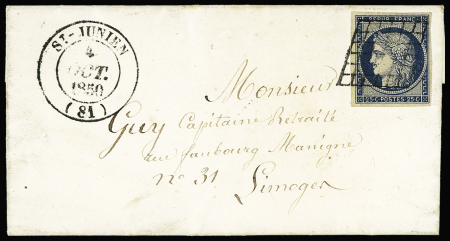 ST-JUNIEN
4
OCT.
1850
(81)
REPUB. FRANC.
25 C POSTES 25 C
Monsieur
Guy Capitaine Retraité
rue faubourg Manigne
no 31
Limoges